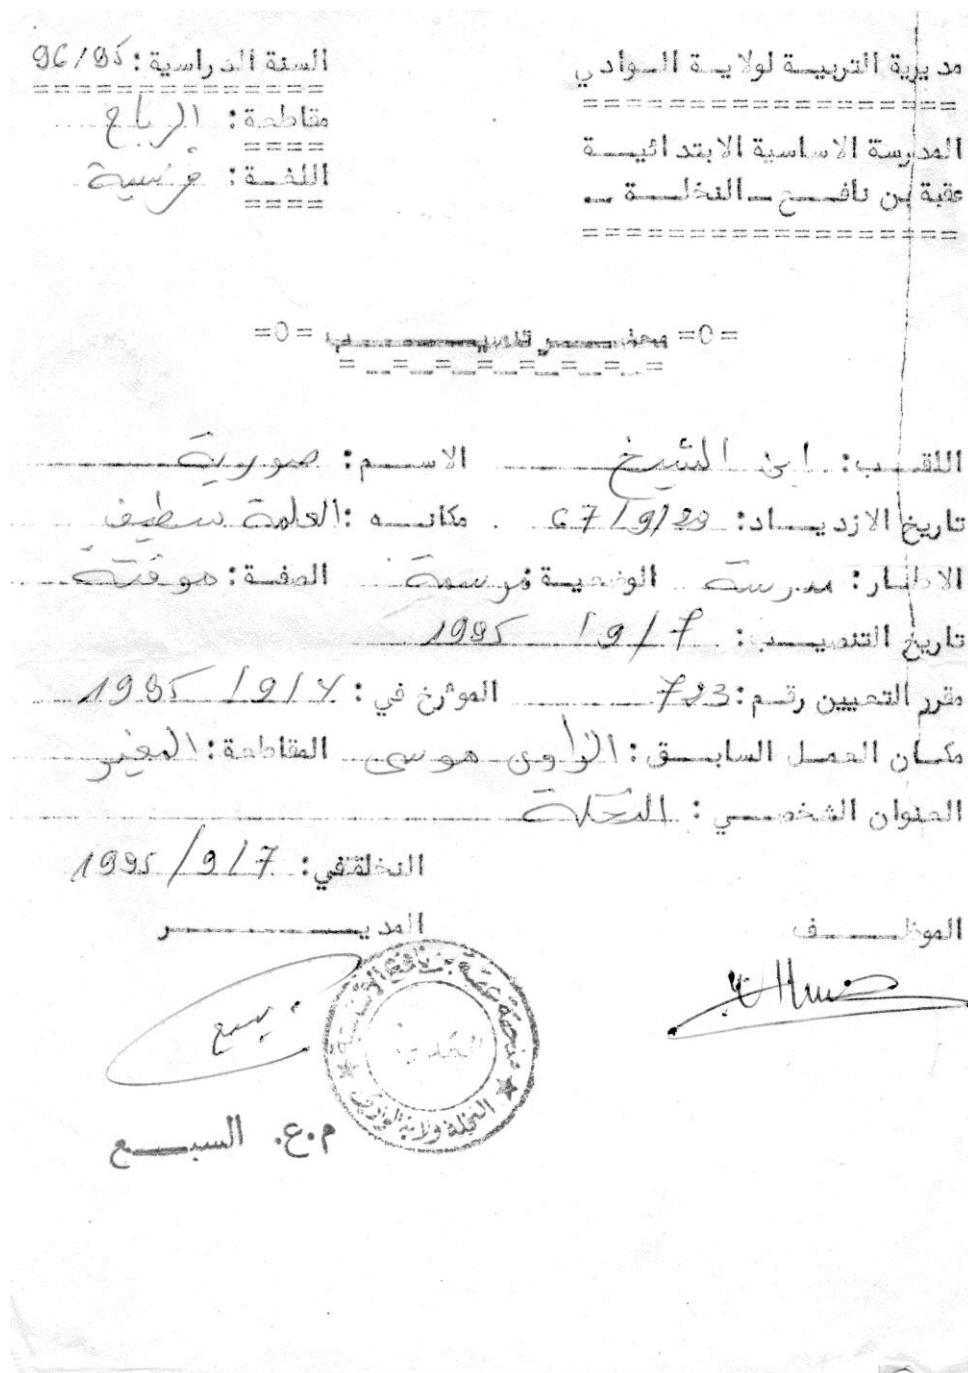 مديرية التربية لولاية الوادي
المدرسة الاساسية الابتدائية
عقبة بن نافع - النخلة -
السنة الدراسية: 96/95
مقاطعة: الرباح
اللغة: فرنسية
=0= محضر تنصيب =0=
اللقب: ابن الشيخ الاسم: صورية
تاريخ الازدياد: 67/9/29 مكانه: العلمة سطيف
الاطار: مدرسة الوضعية: مرسمة الصفة: موقتة
تاريخ التنصيب: 1995/9/7
مقرر التعيين رقم: 723 المؤرخ في: 1995/9/7
مكان العمل السابق: موسى المقاطعة: المغير
العنوان الشخصي: النخلة
النخلة في: 1995/9/7
الموظف المدير
المدير
النخلة ولاية الوادي
م.ع. السبع